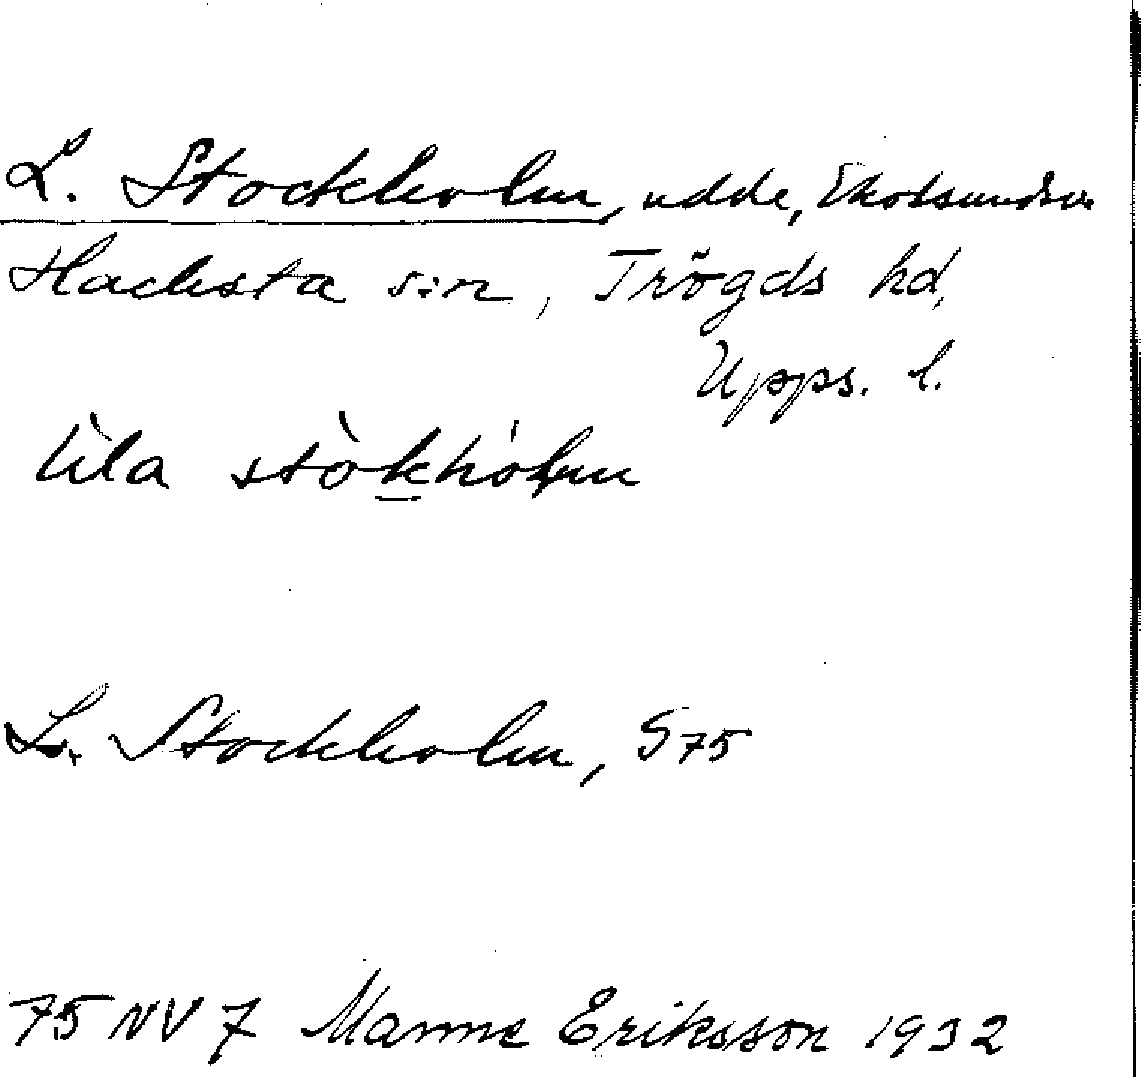 L. Stockholm, udde, Ekolsundsv.
Hacksta s:n, Trögds hd,
Upps. l.
lìla stòkhólm
L. Stockholm, S75
75 NV 7 Manne Eriksson 1932